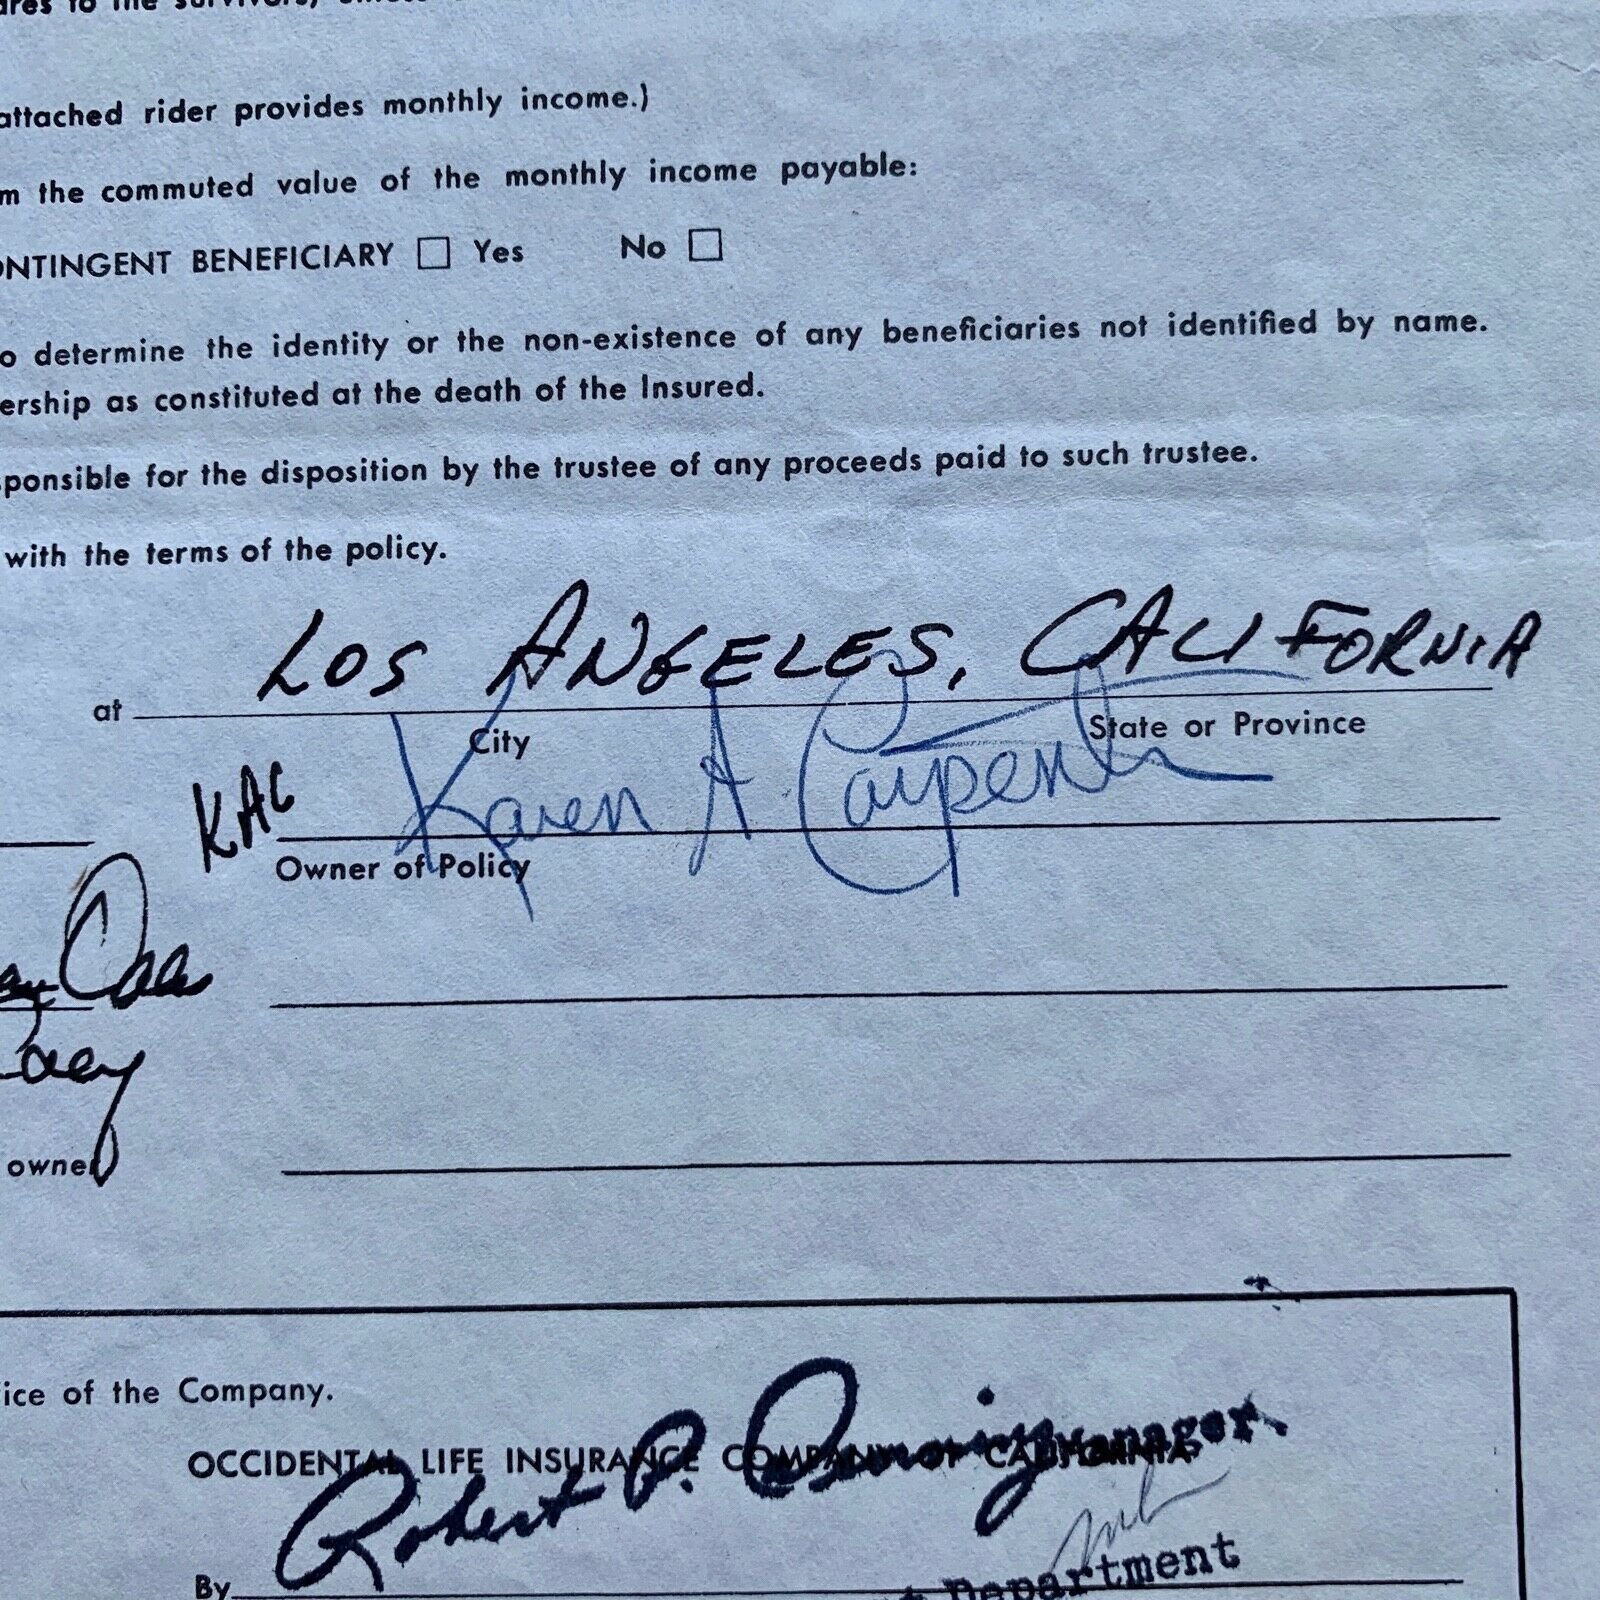 to the
attached rider provides monthly income.)
the commuted value of the monthly income payable:
CONTINGENT BENEFICIARY ☐ Yes No ☐
determine the identity or the non-existence of any beneficiaries not identified by name.
as constituted at the death of the Insured.
for the disposition by the trustee of any proceeds paid to such trustee.
with the terms of the policy.
at LOS ANGELES, CALIFORNIA
City State or Province
KAC Karen A Carpenter
Owner of Policy
owner
of the Company.
OCCIDENTAL LIFE INSURANCE COMPANY OF CALIFORNIA
Robert P. Manager.
By
Department